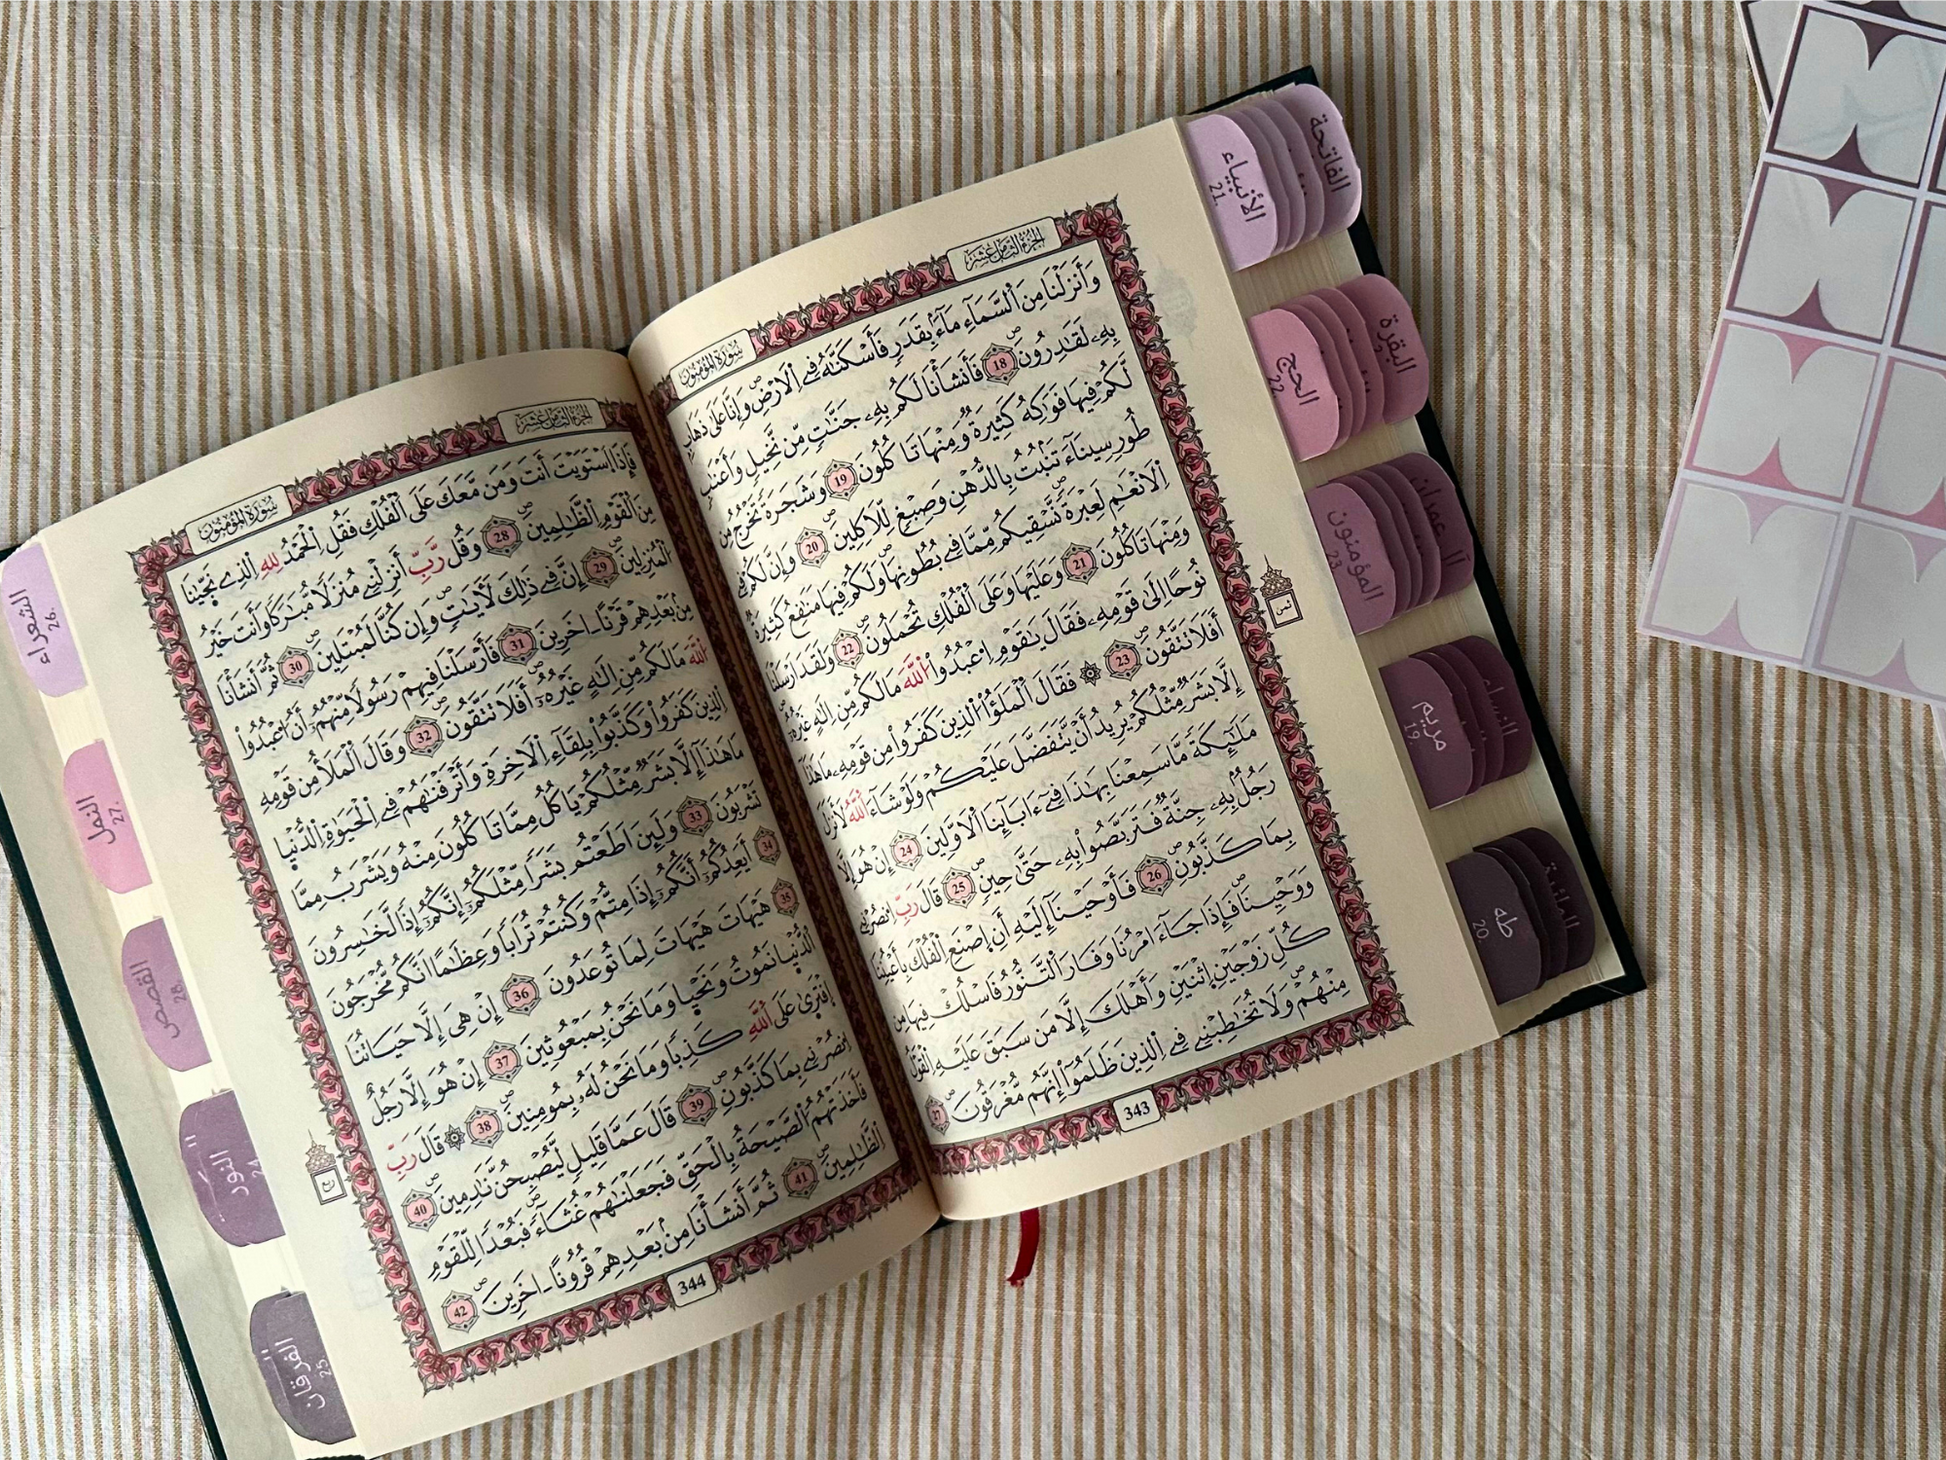 الجزء الثامن عشر
سورة المؤمنون
وَأَنزَلْنَا مِنَ اَلسَّمَآءِ مَآءَۢ بِقَدَرٖ فَأَسْكَنَّٰهُ فِے اِلَارْضِۖ وَإِنَّا عَلَىٰ ذَهَابِۢ
بِهِۦ لَقَٰدِرُونَۖ 18 فَأَنشَأْنَا لَكُم بِهِۦ جَنَّٰتٖ مِّن نَّخِيلٖ وَأَعْنَٰبٖ
لَّكُمْ فِيهَا فَوَٰكِهُ كَثِيرَةٞ وَمِنْهَا تَاكُلُونَ 19 وَشَجَرَةٗ تَخْرُجُ مِن
طُورِ سِينَآءَ تَنۢبُتُ بِالدُّهْنِ وَصِبْغٖ لِّلَاكِلِينَۖ 20 وَإِنَّ لَكُمْ فِے
اِلَانْعَٰمِ لَعِبْرَةٗ نَّسْقِيكُم مِّمَّا فِے بُطُونِهَاۖ وَلَكُمْ فِيهَا مَنَٰفِعُ كَثِيرَةٞ
وَمِنْهَا تَاكُلُونَ 21 وَعَلَيْهَا وَعَلَى اَلْفُلْكِ تُحْمَلُونَۖ 22 وَلَقَدَ اَرْسَلْنَا
نُوحًا اِلَىٰ قَوْمِهِۦ فَقَالَ يَٰقَوْمِ اِعْبُدُوا۟ اُللَّهَ مَا لَكُم مِّنِ اِلَٰهٍ غَيْرُهُۥٓ
أَفَلَا تَتَّقُونَۖ 23 ۞ فَقَالَ اَلْمَلَؤُا۟ اُلذِينَ كَفَرُوا۟ مِن قَوْمِهِۦ مَا هَٰذَآ
إِلَّا بَشَرٞ مِّثْلُكُمْ يُرِيدُ أَنْ يَّتَفَضَّلَ عَلَيْكُمْ وَلَوْ شَآءَ اَللَّهُ لَأَنزَلَ
مَلَٰٓئِكَةٗ مَّا سَمِعْنَا بِهَٰذَا فِےٓ ءَابَآئِنَا اَلَاوَّلِينَ 24 إِنْ هُوَ إِلَّا
رَجُلُۢ بِهِۦ جِنَّةٞ فَتَرَبَّصُوا۟ بِهِۦ حَتَّىٰ حِينٖۖ 25 قَالَ رَبِّ اِنصُرْنِے
بِمَا كَذَّبُونِۖ 26 فَأَوْحَيْنَآ إِلَيْهِ أَنِ اِصْنَعِ اِلْفُلْكَ بِأَعْيُنِنَا
وَوَحْيِنَاۖ فَإِذَا جَآءَ امْرُنَا وَفَارَ اَلتَّنُّورُ فَاسْلُكْ فِيهَا مِن
كُلِّ زَوْجَيْنِ اِثْنَيْنِ وَأَهْلَكَ إِلَّا مَن سَبَقَ عَلَيْهِ اِلْقَوْلُ
مِنْهُمْۖ وَلَا تُخَٰطِبْنِے فِے اِلذِينَ ظَلَمُوٓا۟ إِنَّهُم مُّغْرَقُونَۖ 27
343
ثمن
الجزء الثامن عشر
سورة المؤمنون
فَإِذَا اَسْتَوَيْتَ أَنتَ وَمَن مَّعَكَ عَلَى اَلْفُلْكِ فَقُلِ اِلْحَمْدُ لِلهِ اِلذِے نَجَّيٰنَا
مِنَ اَلْقَوْمِ اِلظَّٰلِمِينَۖ 28 وَقُل رَّبِّ أَنزِلْنِے مُنزَلٗا مُّبَٰرَكٗا وَأَنتَ خَيْرُ
اُلْمُنزِلِينَۖ 29 إِنَّ فِے ذَٰلِكَ لَأٓيَٰتٖ وَإِن كُنَّا لَمُبْتَلِينَۖ 30 ثُمَّ أَنشَأْنَا
مِنۢ بَعْدِهِمْ قَرْنًا اٰخَرِينَ 31 فَأَرْسَلْنَا فِيهِمْ رَسُولٗا مِّنْهُمُۥٓ أَنُ اُعْبُدُوا۟
اُللَّهَ مَا لَكُم مِّنِ اِلَٰهٍ غَيْرُهُۥٓ أَفَلَا تَتَّقُونَۖ 32 وَقَالَ اَلْمَلَأُ مِن قَوْمِهِ
اِلذِينَ كَفَرُوا۟ وَكَذَّبُوا۟ بِلِقَآءِ اِلَاخِرَةِ وَأَتْرَفْنَٰهُمْ فِے اِلْحَيَوٰةِ اِلدُّنْيٰا
مَا هَٰذَآ إِلَّا بَشَرٞ مِّثْلُكُمْ يَاكُلُ مِمَّا تَاكُلُونَ مِنْهُ وَيَشْرَبُ مِمَّا
تَشْرَبُونَ 33 وَلَئِنَ اَطَعْتُم بَشَرٗا مِّثْلَكُمُۥٓ إِنَّكُمُۥٓ إِذٗا لَّخَٰسِرُونَ 34
أَيَعِدُكُمُۥٓ أَنَّكُمُۥٓ إِذَا مِتُّمْ وَكُنتُمْ تُرَابٗا وَعِظَٰمًا اَنَّكُم مُّخْرَجُونَ 35
هَيْهَاتَ هَيْهَاتَ لِمَا تُوعَدُونَ 36 إِنْ هِىَ إِلَّا حَيَاتُنَا
اَلدُّنْيٰا نَمُوتُ وَنَحْيٰا وَمَا نَحْنُ بِمَبْعُوثِينَ 37 إِنْ هُوَ إِلَّا رَجُلٌ
اِفْتَرَىٰ عَلَى اَللَّهِ كَذِبٗا وَمَا نَحْنُ لَهُۥ بِمُومِنِينَۖ 38 ۞ قَالَ رَبِّ
اِنصُرْنِے بِمَا كَذَّبُونِۖ 39 قَالَ عَمَّا قَلِيلٖ لَّيُصْبِحُنَّ نَٰدِمِينَۖ 40
فَأَخَذَتْهُمُ اُلصَّيْحَةُ بِالْحَقِّ فَجَعَلْنَٰهُمْ غُثَآءٗۖ فَبُعْدٗا لِّلْقَوْمِ
اِلظَّٰلِمِينَۖ 41 ثُمَّ أَنشَأْنَا مِنۢ بَعْدِهِمْ قُرُونًا اٰخَرِينَۖ 42
344
ربع
الفاتحة
الأنبياء
21.
البقرة
الحج
22.
آل عمران
المؤمنون
23.
النساء
مريم
19.
المائدة
طه
20.
الشعراء
26.
النمل
27.
القصص
28.
النور
24.
الفرقان
25.